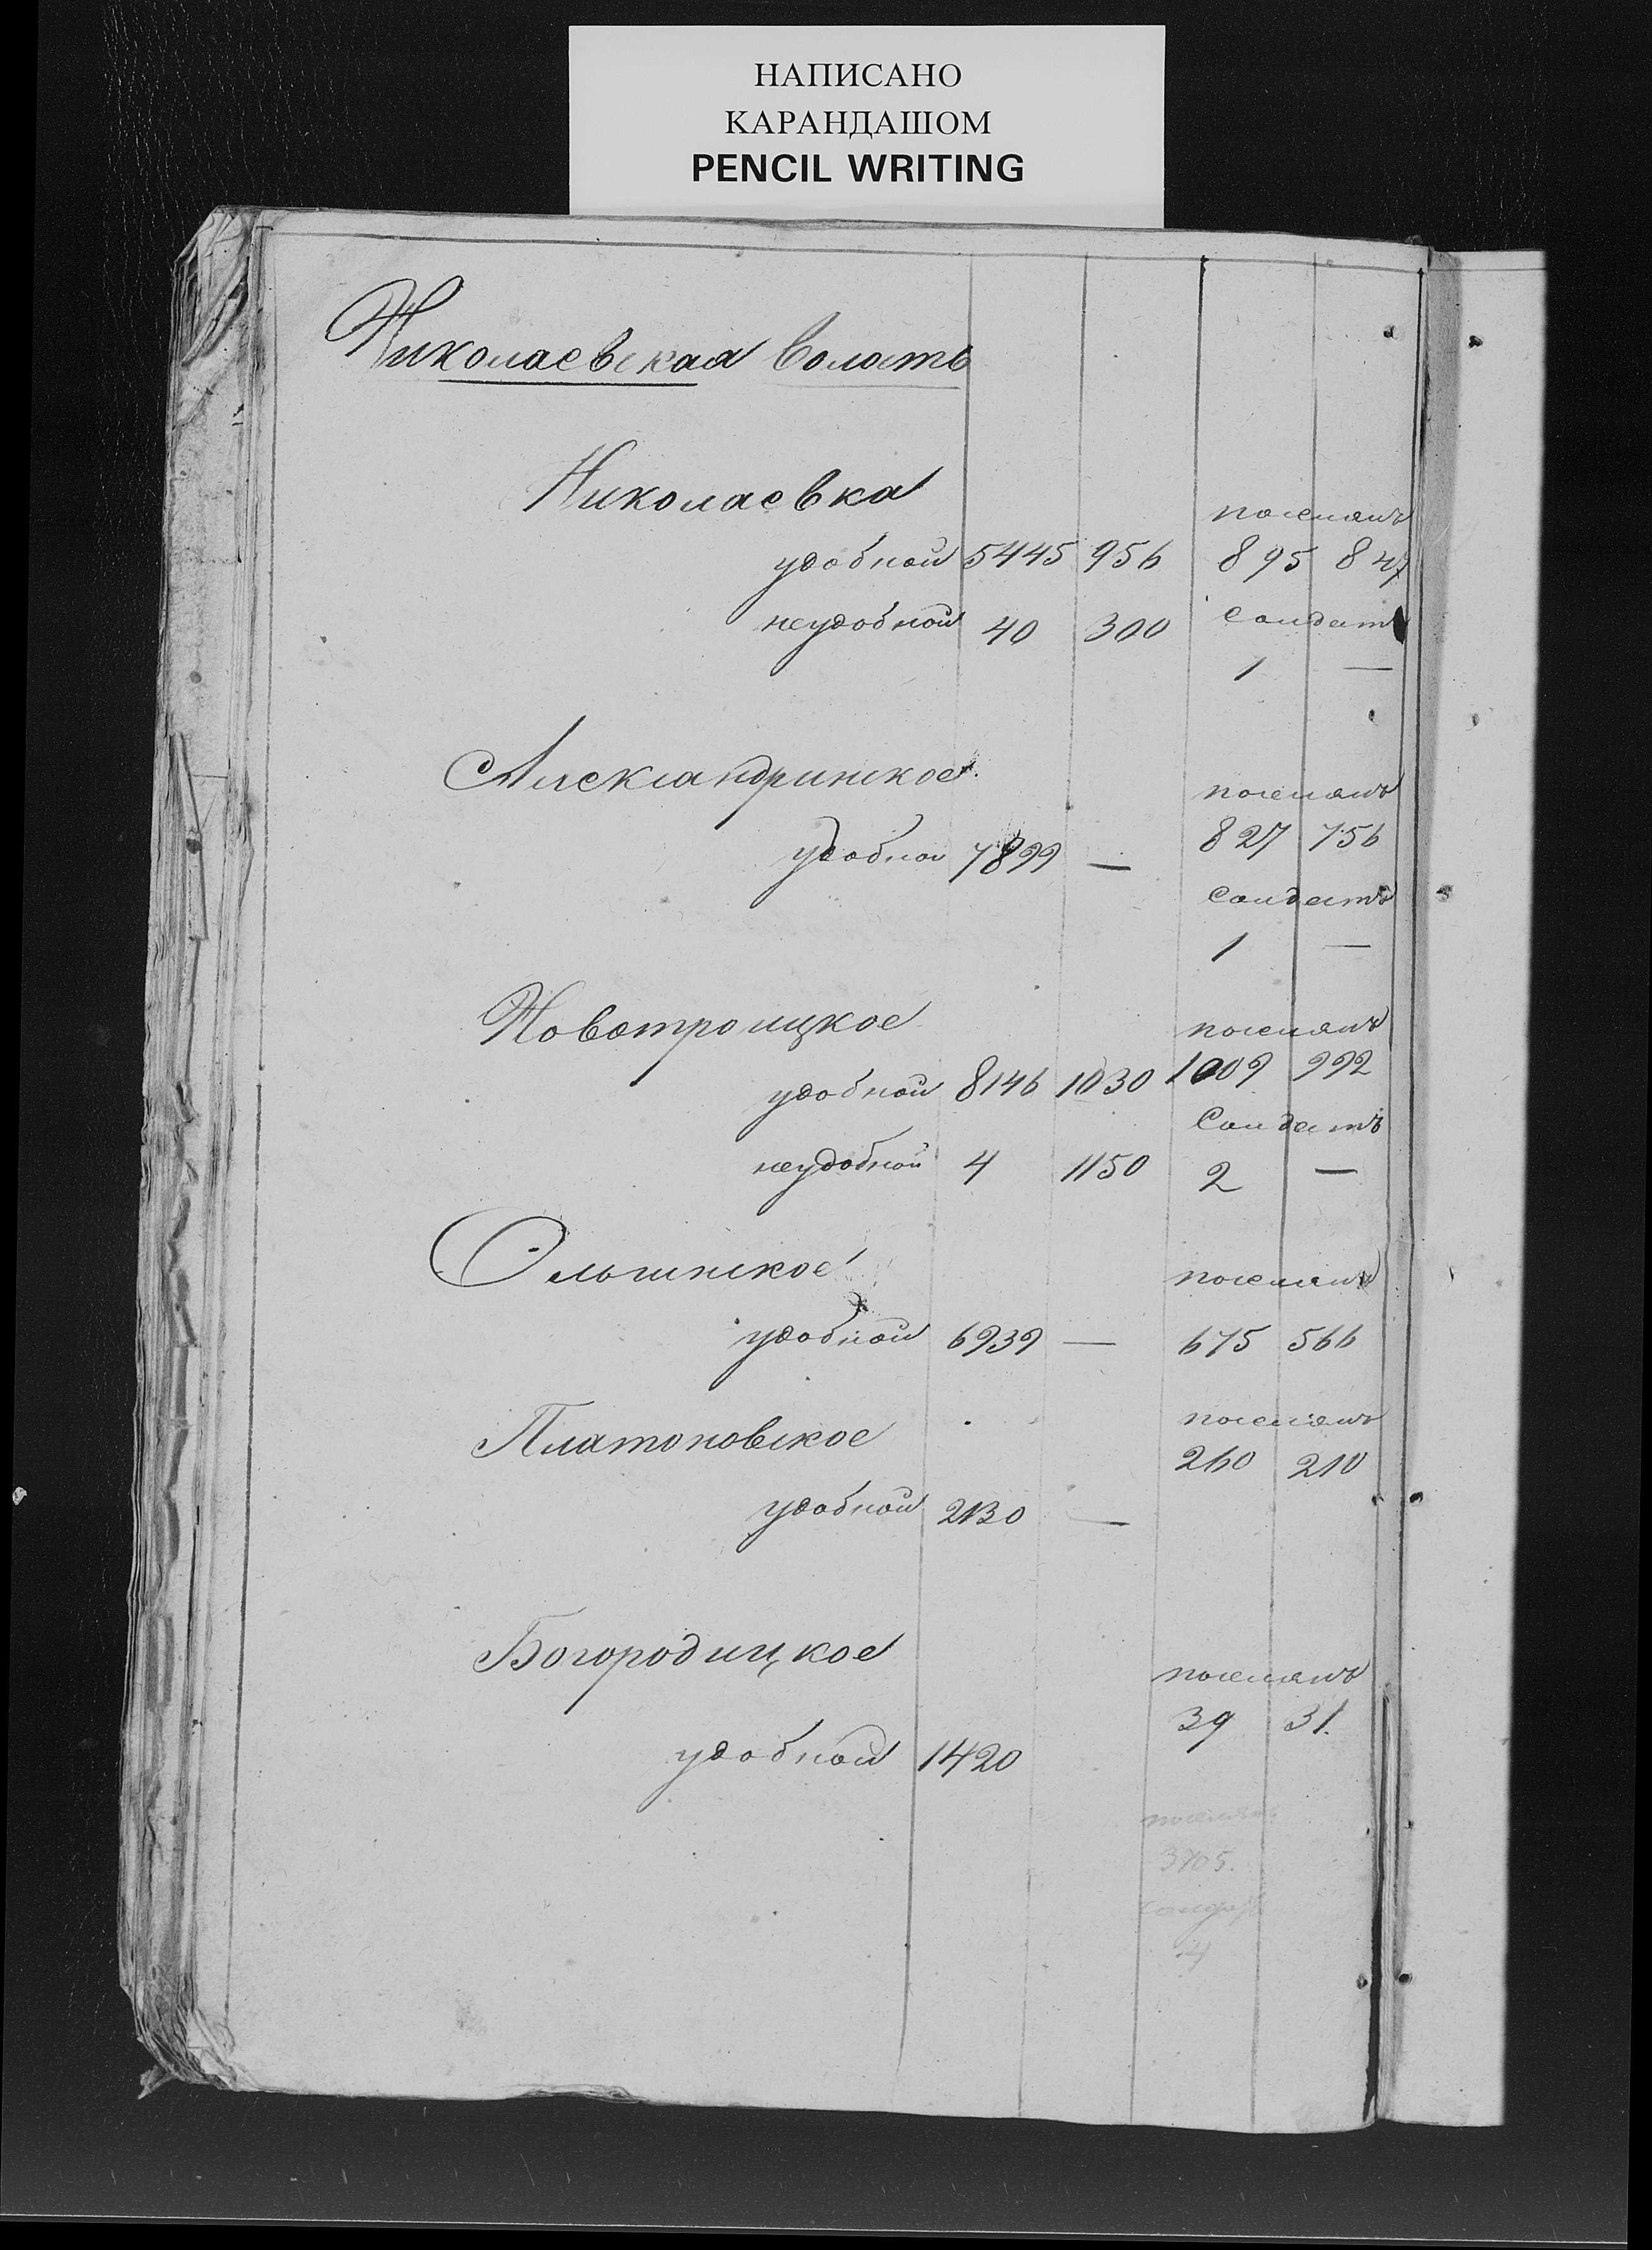 НАПИСАНО
КАРАНДАШОМ
PENCIL WRITING
Николаевская волость
Николаевка
поселянъ
удобной 5445 956 895 847
неудобной 40 300 солдатъ
1 —
Александринское
поселянъ
827 756
удобной 7899 —
солдатъ
1 —
Новотроицкое поселянъ
удобной 8146 1030 1009 992
Солдатъ
неудобной 4 1150 2 —
Ольгинское поселянъ
удобной 6939 — 675 566
Платоновское поселянъ
260 210
удобной 2130 —
Богородицкое
поселянъ
39 31.
удобной 1420
поселянъ
3705.
солдатъ
4